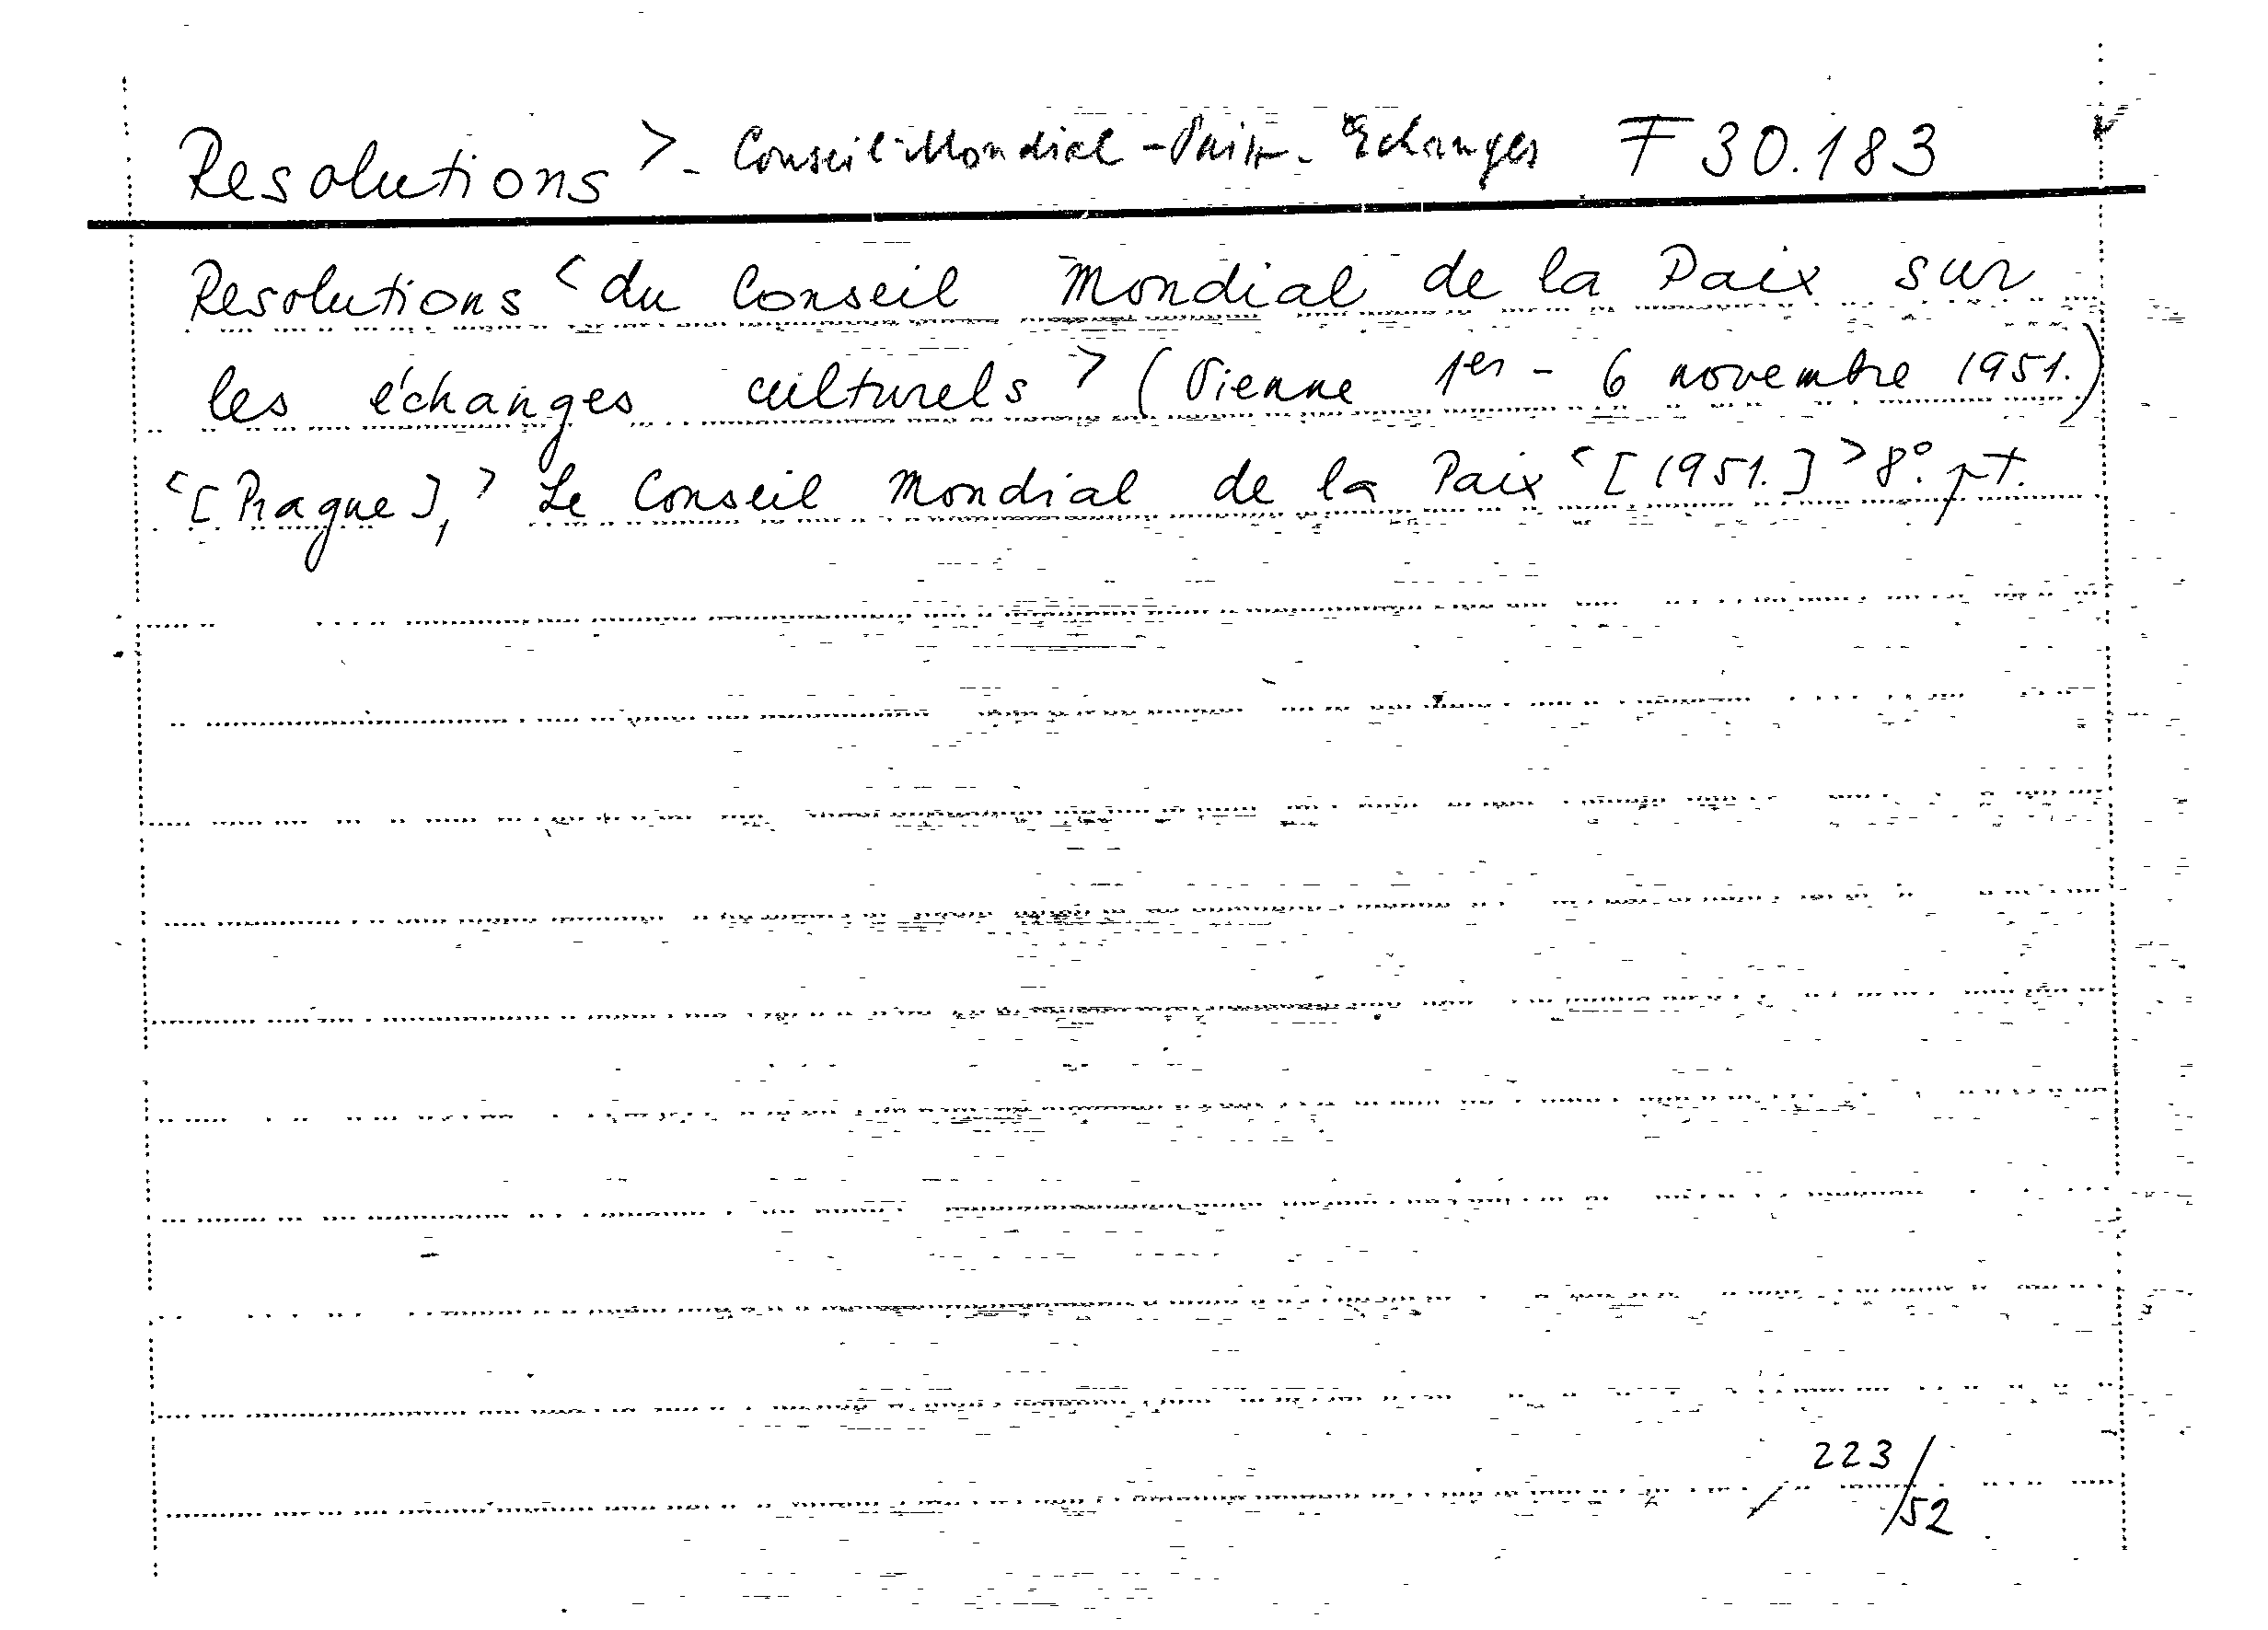 Resolutions > - Conseil-Mondial-Paix- Echanges F 30.183
Resolutions < du Conseil Mondial de la Paix sur
les échanges culturels > (Vienne 1er - 6 novembre 1951.)
< [Prague], > Le Conseil Mondial de la Paix < [1951.] > 8°. pt.
223/52